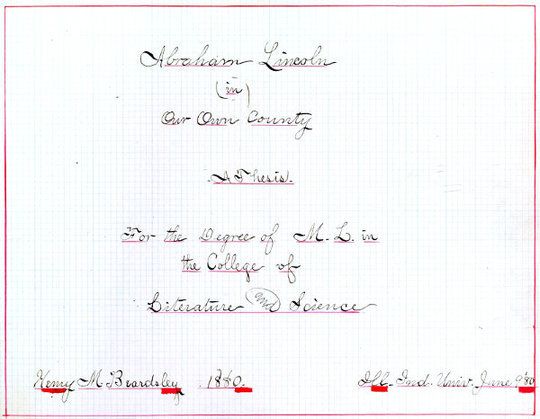 Abraham Lincoln
(in)
Our Own County
A Thesis.
For the Degree of M. L. in
the College of
Literature and Science
Henry M Beardsley 1880. Ill. Ind. Univ. June 9 '80